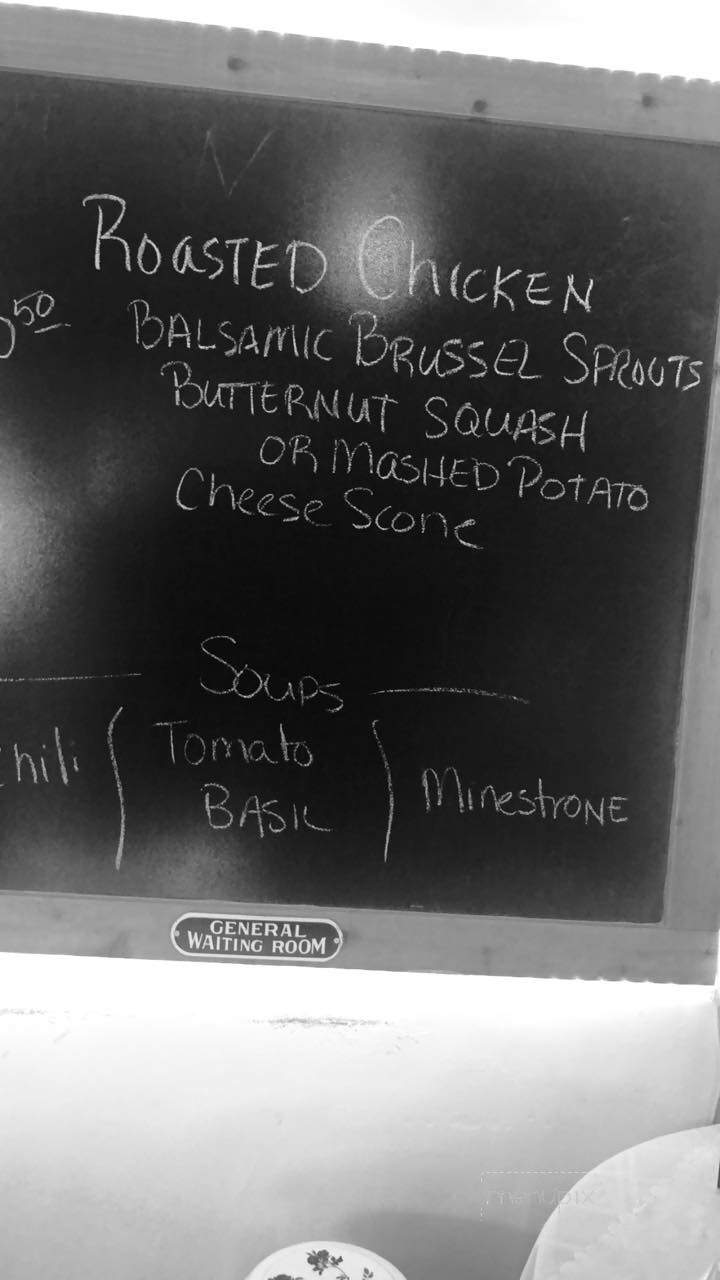 ROASTED CHICKEN
50
BALSAMIC BRUSSEL SPROUTS
BUTTERNUT SQUASH
OR MASHED POTATO
Cheese Scone
Soups
hili
Tomato
BASIL
MinestrONE
GENERAL
WAITING ROOM
menupix